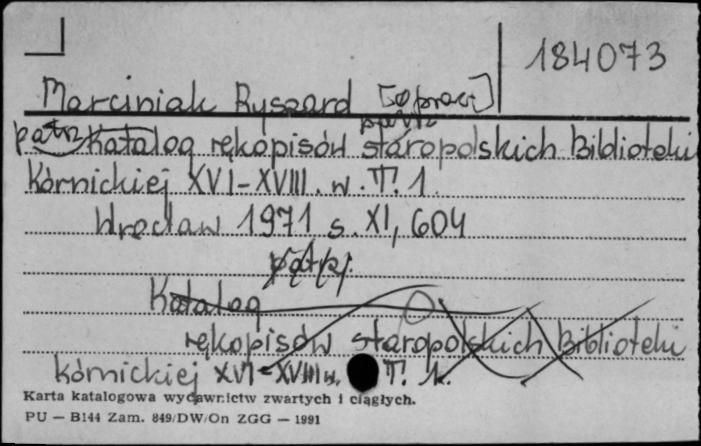 184073
Marciniak Ryszard [oprac.]
patrz Katalog rękopisów staropolskich Biblioteki
Kórnickiej XVI-XVIII. w. T. 1.
Wrocław 1971 s. XI, 604
Katalog
rękopisów staropolskich Biblioteki
Kórnickiej XVI-XVIII w. T. 1.
Karta katalogowa wydawnictw zwartych i ciągłych.
PU — B144 Zam. 849/DW/On ZGG — 1991